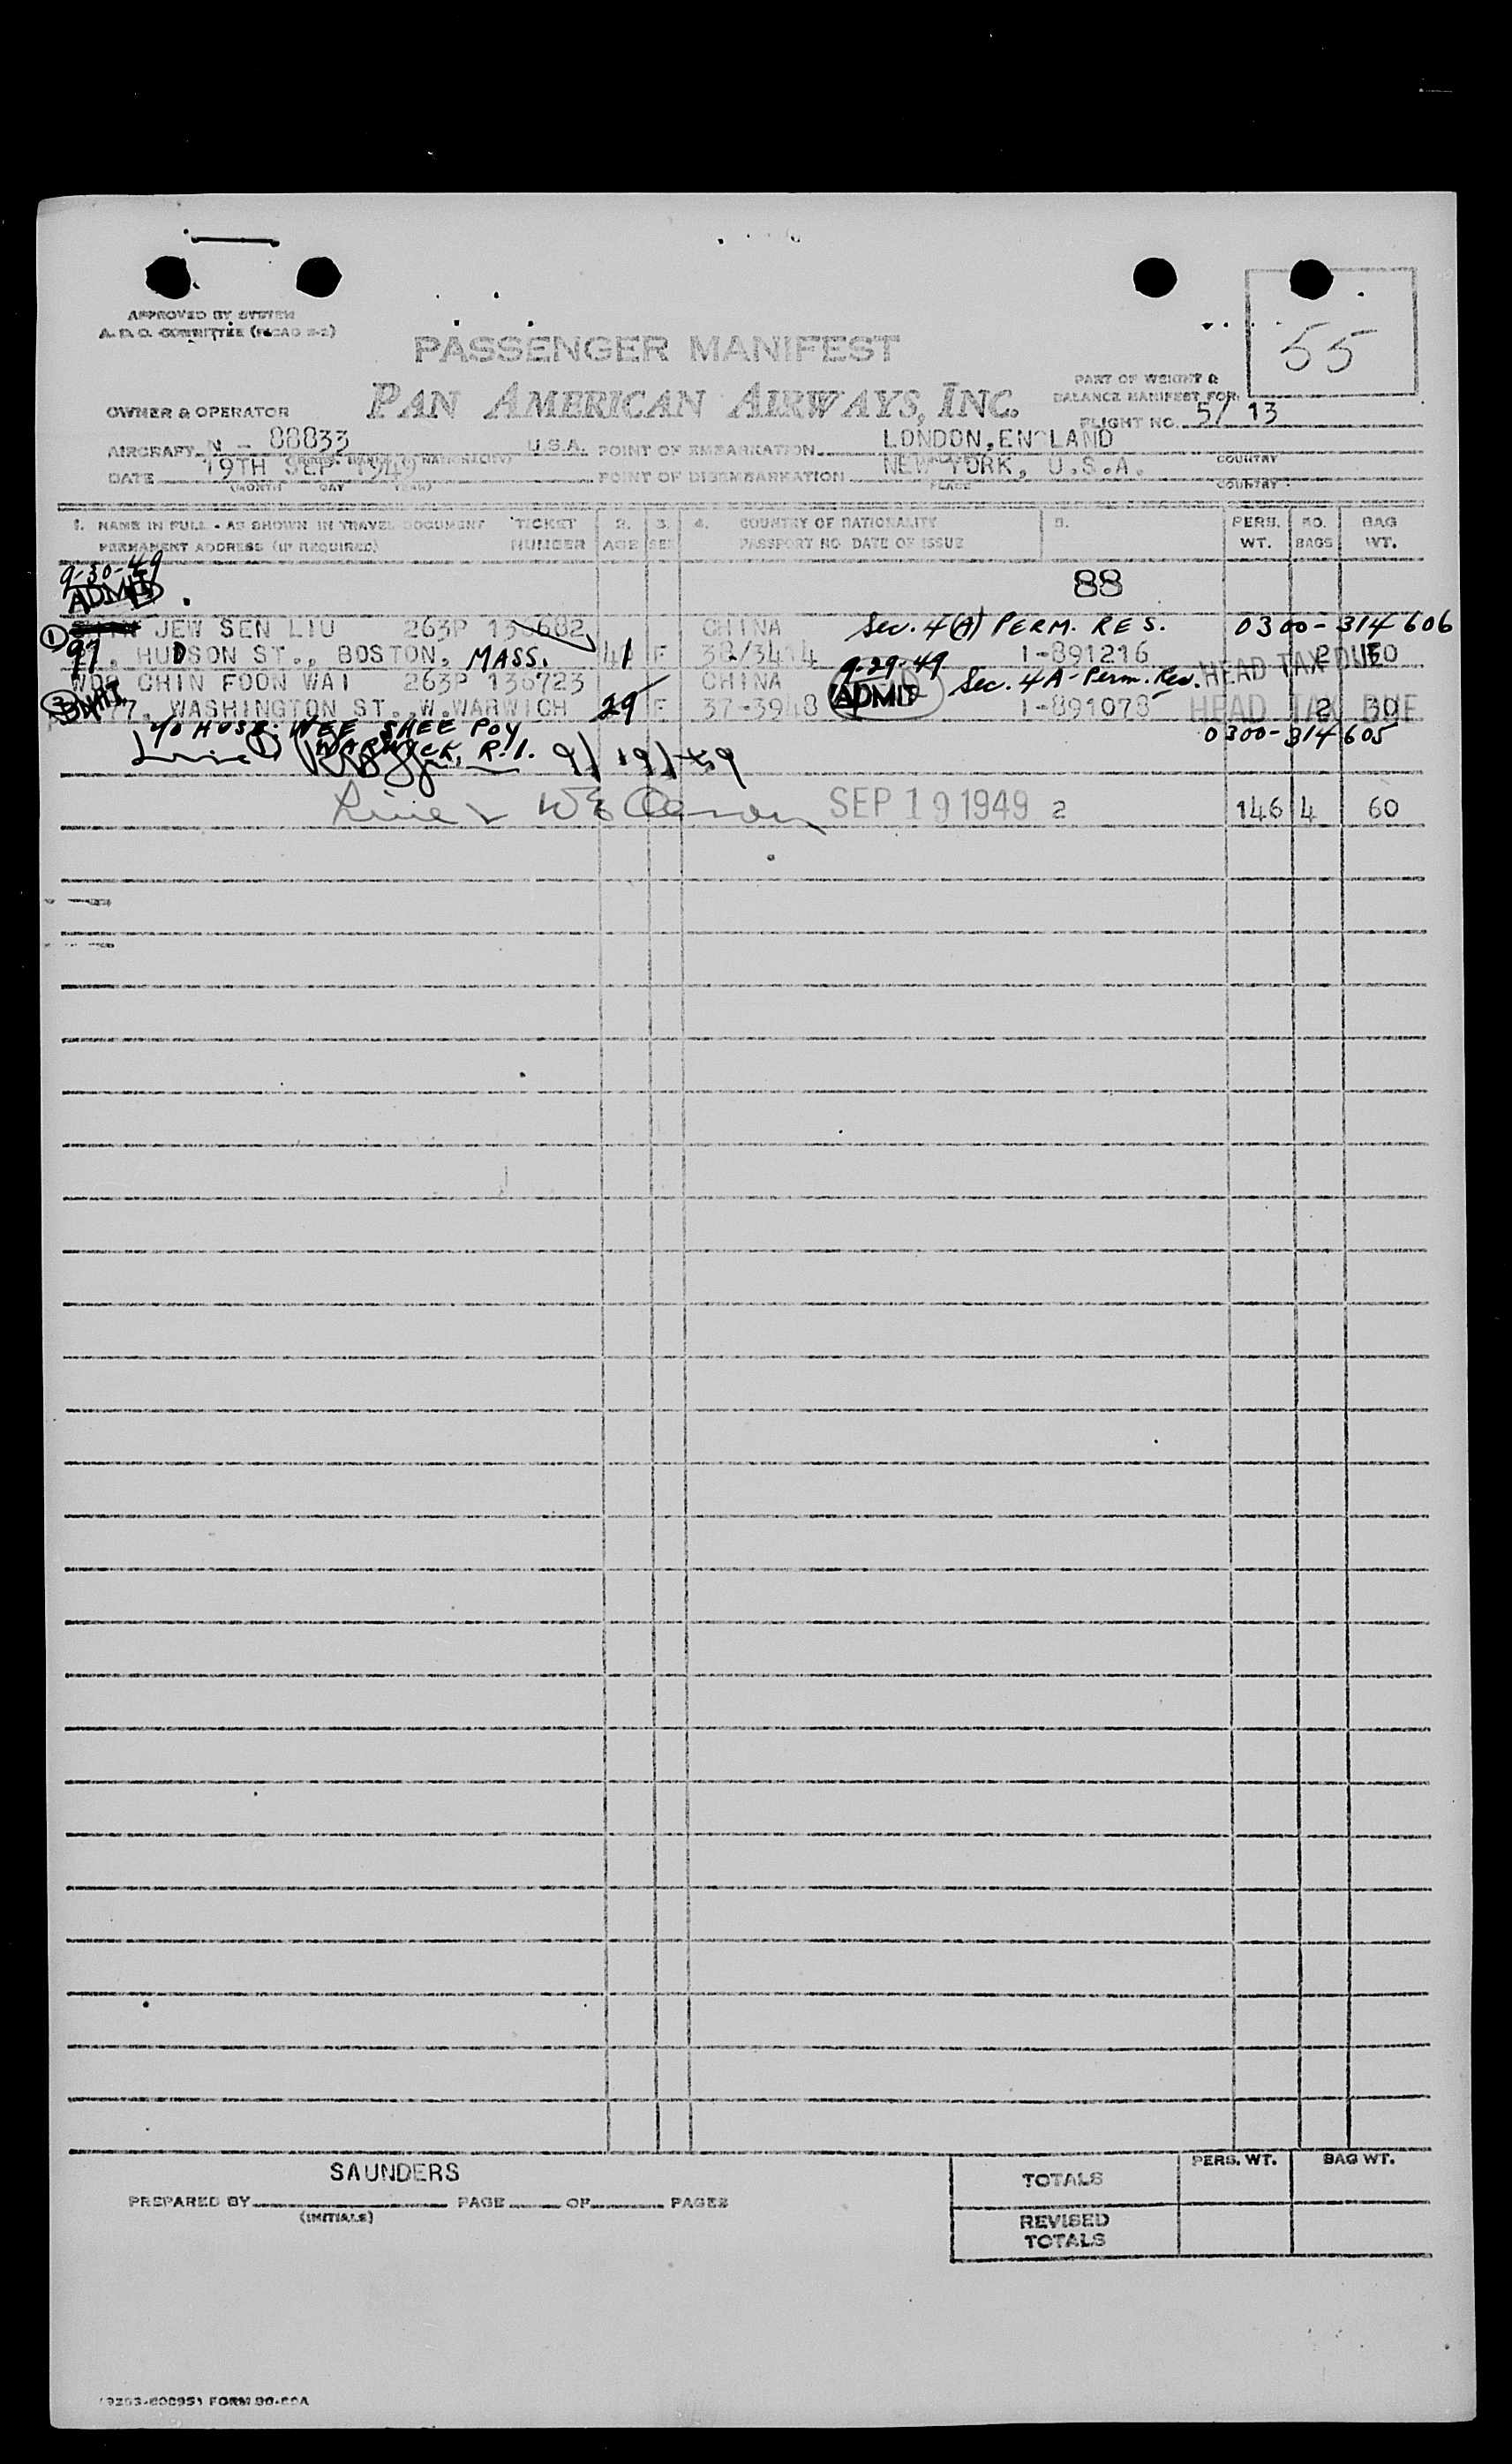 APPROVED BY SYSTEM
A. D. O. COMMITTEE
55
PASSENGER MANIFEST
PAN AMERICAN AIRWAYS, INC.
PART OF WEIGHT &
BALANCE MANIFEST FOR
FLIGHT NO. 5/ 13
OWNER & OPERATOR
AIRCRAFT N - 88833 U.S.A. POINT OF EMBARKATION LONDON, ENGLAND
COUNTRY
DATE 19TH SEP 1949 POINT OF DISEMBARKATION NEW YORK, U.S.A.
(MONTH DAY YEAR) PLACE COUNTRY
1. NAME IN FULL - AS SHOWN IN TRAVEL DOCUMENT TICKET 2. 3. 4. COUNTRY OF NATIONALITY 5. PERS. NO. BAG
PERMANENT ADDRESS (IF REQUIRED) NUMBER AGE SEX PASSPORT NO. DATE OF ISSUE WT. BAGS WT.
9-30-49
ADMIT 88
① JEW SEN LIU 263P CHINA Sec. 4(A) PERM. RES. 0300-314606
97, HUDSON ST., BOSTON, MASS. 41 F 1-891216 HEAD TAX DUE 2
CHIN FOON WAI 263P 136723 CHINA 9-29-49 Sec. 4A-Perm. Res.
77, WASHINGTON ST., W.WARWICH 29 F ADMIT 1-891078 HEAD TAX DUE 2 30
TO HUSB: WEE SHEE POY 0300-314605
WARWICK, R.I. 9/19/49
SEP 19 1949 2 146 4 60
SAUNDERS
PREPARED BY PAGE OF PAGES
(INITIALS)
TOTALS PERS. WT. BAG WT.
REVISED
TOTALS